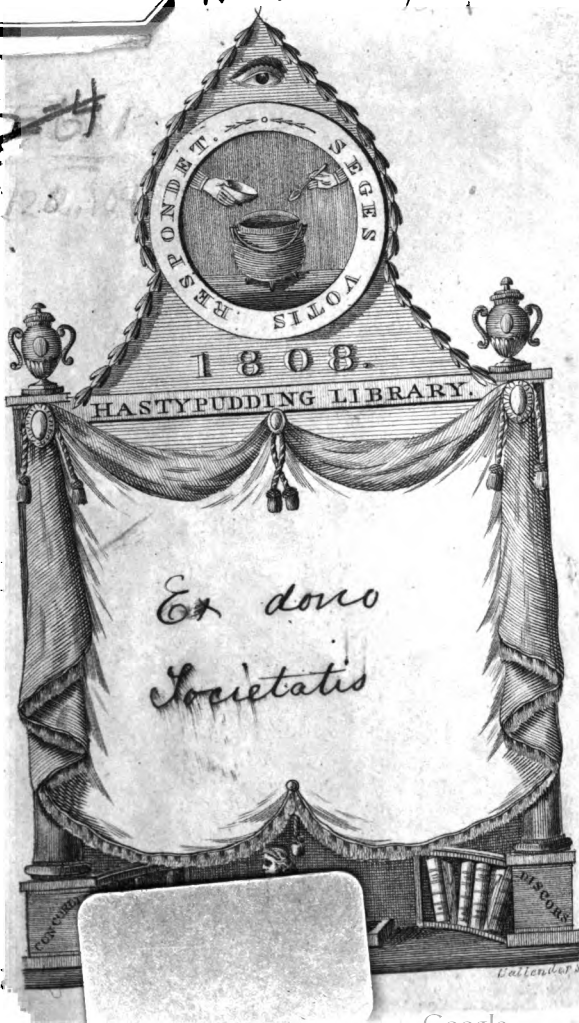 SEGES VOTIS RESPONDET.
1808.
HASTYPUDDING LIBRARY.
Ex dono
Societatis
DISCORS.
Callender S
Google